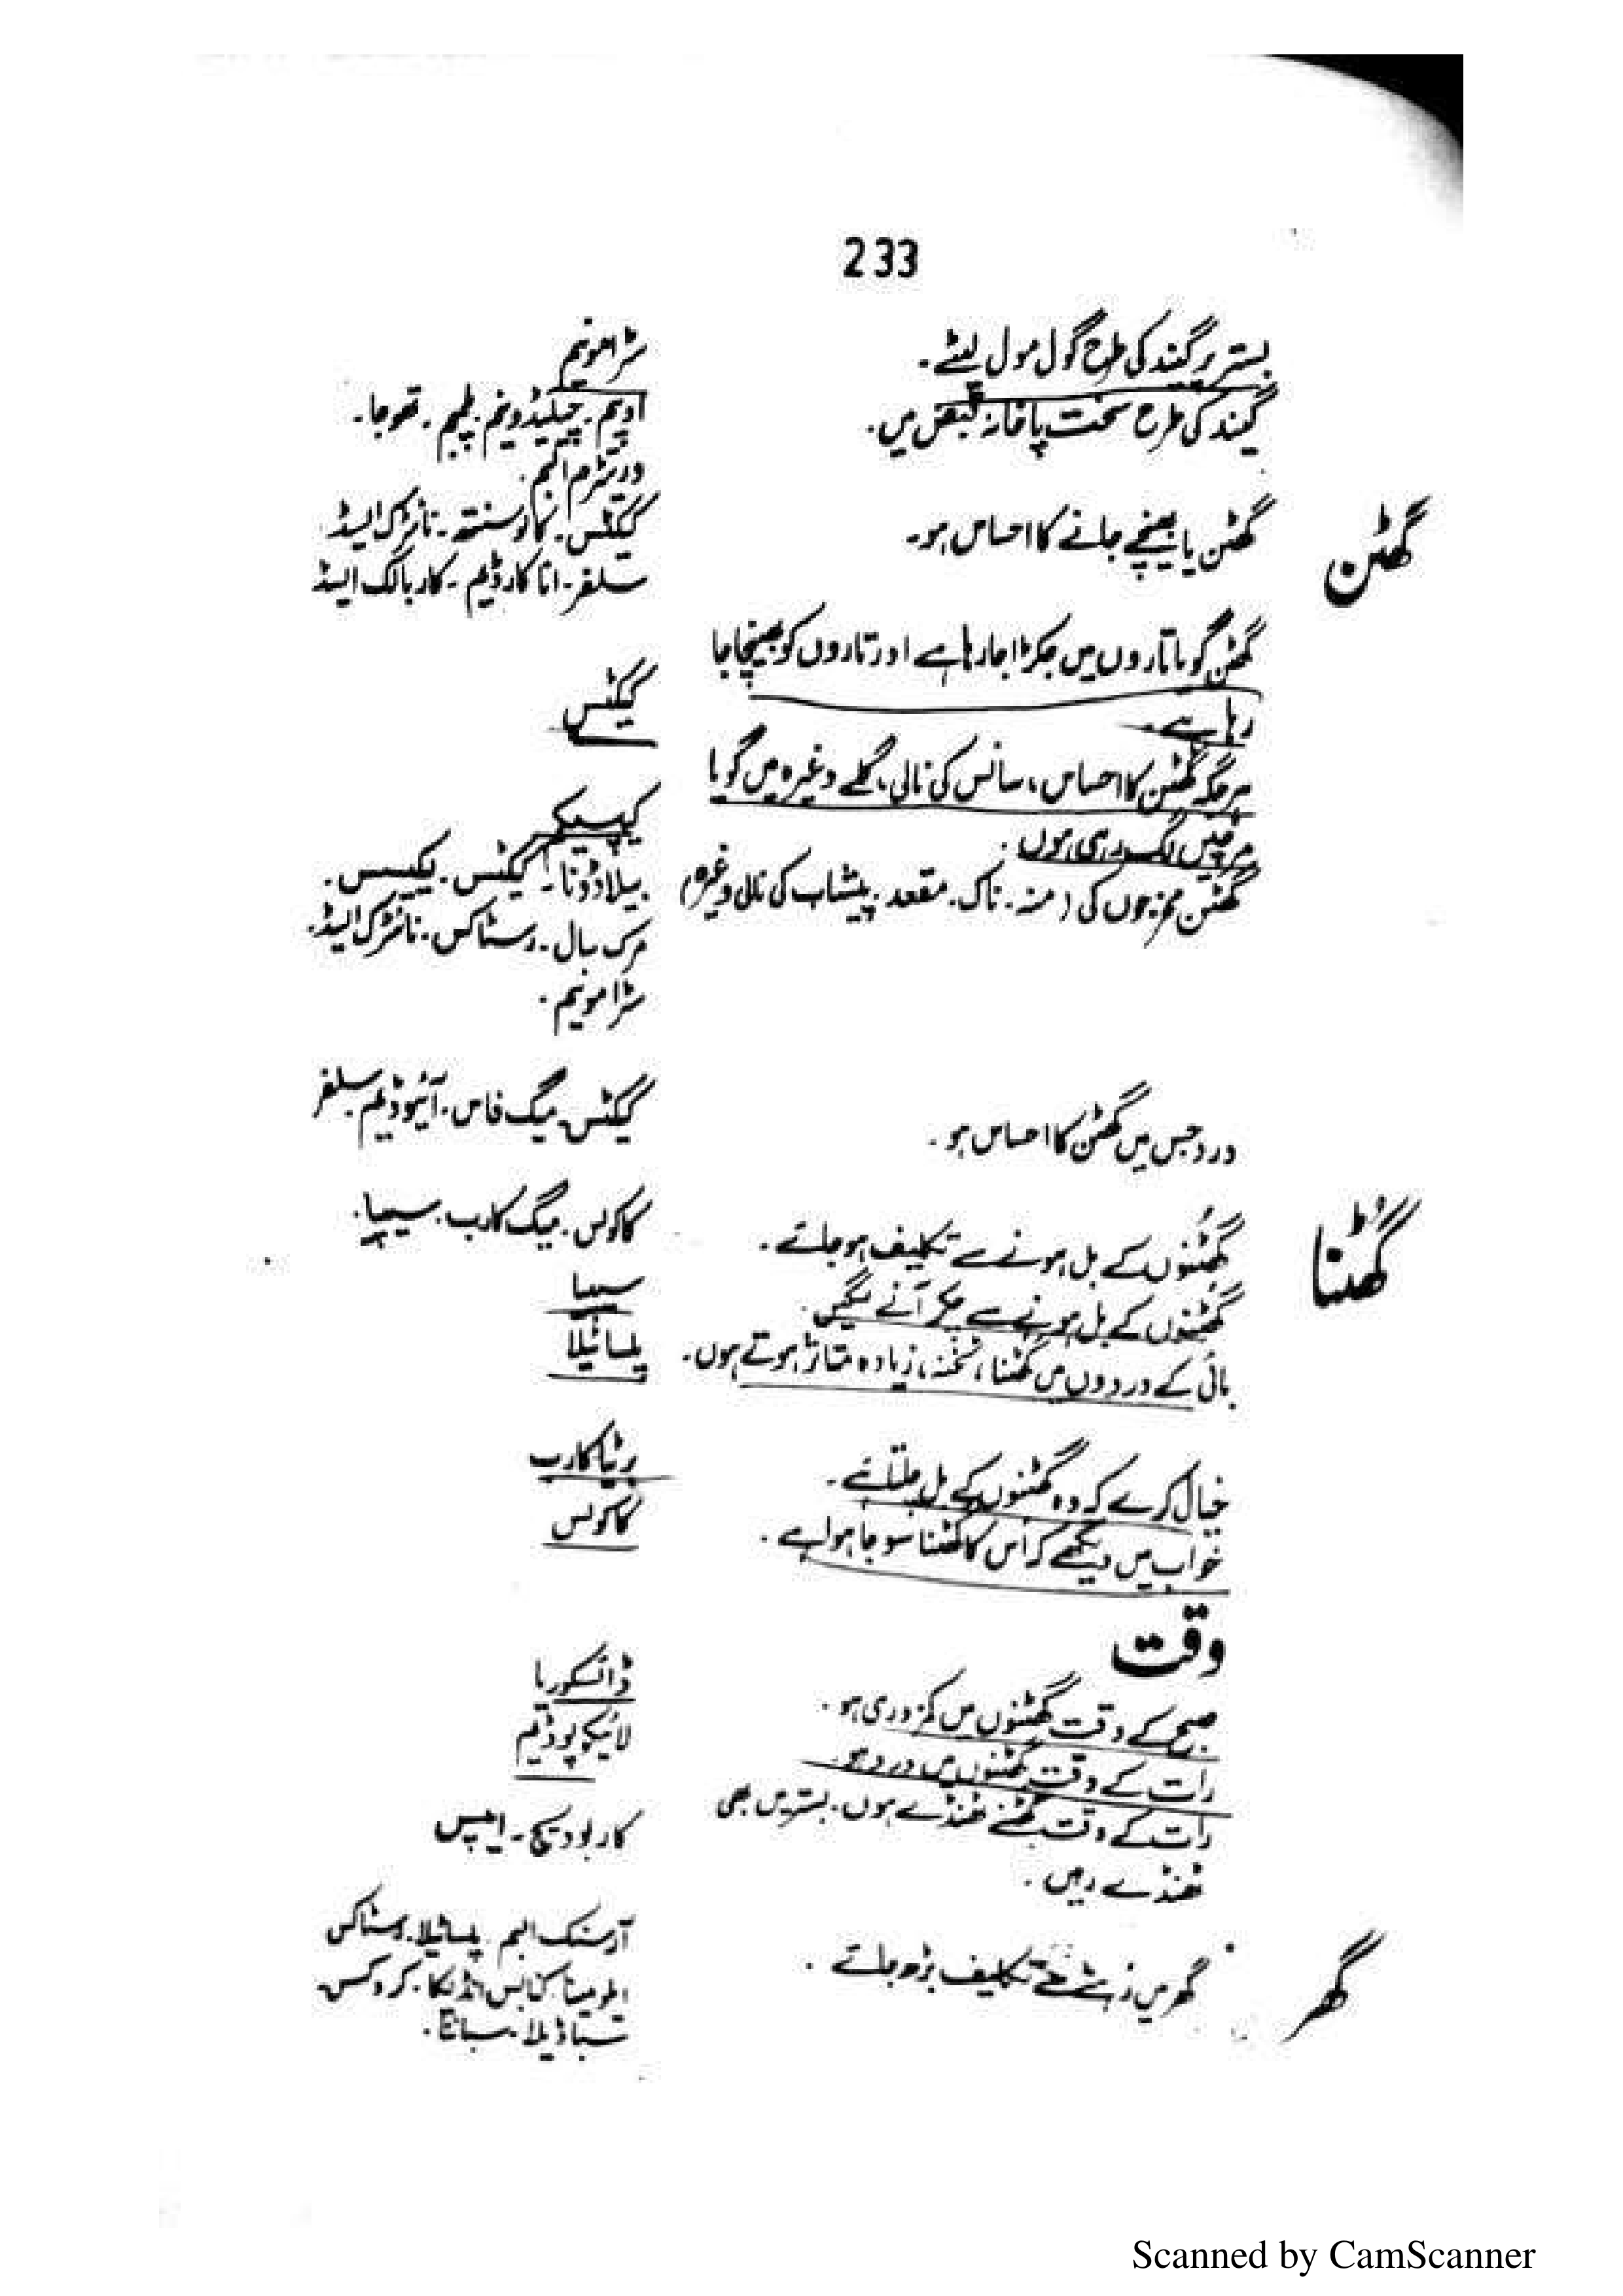 233
بستر پر گیند کی طرح گول مول لیٹے۔ سٹرامونیم
گیند کی طرح سخت پاخانہ قبض میں۔ اوپیم۔ چیلیڈونیم۔ پلمبم۔ تھوجا۔
ورٹرم البم۔
گھٹن
گھٹن یا بھینچے جانے کا احساس ہو۔ کیکٹس۔ کالوسنتھ۔ نائٹرک ایسڈ
سلفر۔ اناکارڈیم۔ کاربالک ایسڈ
گھٹن گویا تاروں میں جکڑا جا رہا ہے اور تاروں کو بھینچا جا
رہا ہے۔ کیکٹس
ہر جگہ گھٹن کا احساس، سانس کی نالی، گلے وغیرہ میں گویا
مرچیں لگ رہی ہوں۔ کیپسیکم
گھٹن مخرجوں کی (منہ۔ ناک۔ مقعد۔ پیشاب کی نالی وغیرہ) بیلاڈونا۔ کیکٹس۔ لیکیسس۔
مرک سال۔ رسٹاکس۔ نائٹرک ایسڈ۔
سٹرامونیم۔
درد جس میں گھٹن کا احساس ہو۔ کیکٹس۔ میگ فاس۔ آئیوڈیم۔ سلفر
گھُٹنا
گھُٹنوں کے بل ہونے سے تکلیف ہو جائے۔ کاکولس۔ میگ کارب۔ سیپیا۔
گھُٹنوں کے بل ہونے سے چکر آنے لگیں۔ سیپیا
بائی کے دردوں میں گھٹنا، ٹخنہ، زیادہ متاثر ہوتے ہوں۔ پلساٹیلا
خیال کرے کہ وہ گھٹنوں کے بل چلتا ہے۔ برٹیا کارب
خواب میں دیکھے کہ اُس کا گھٹنا سوجا ہوا ہے۔ کاکولس
وقت
صبح کے وقت گھٹنوں میں کمزوری ہو۔ ڈائسکوریا
رات کے وقت گھٹنوں میں درد ہو۔ لائیکوپوڈیم
رات کے وقت گھٹنے ٹھنڈے ہوں۔ بستر میں بھی کاربوویج۔ ایپس
ٹھنڈے رہیں۔
گھر
گھر میں رہنے سے تکلیف بڑھ جائے۔ آرسنک البم۔ پلساٹیلا۔ رسٹاکس
ایلومینا۔ کنابس انڈیکا۔ کروکس
سباڈیلا۔
Scanned by CamScanner